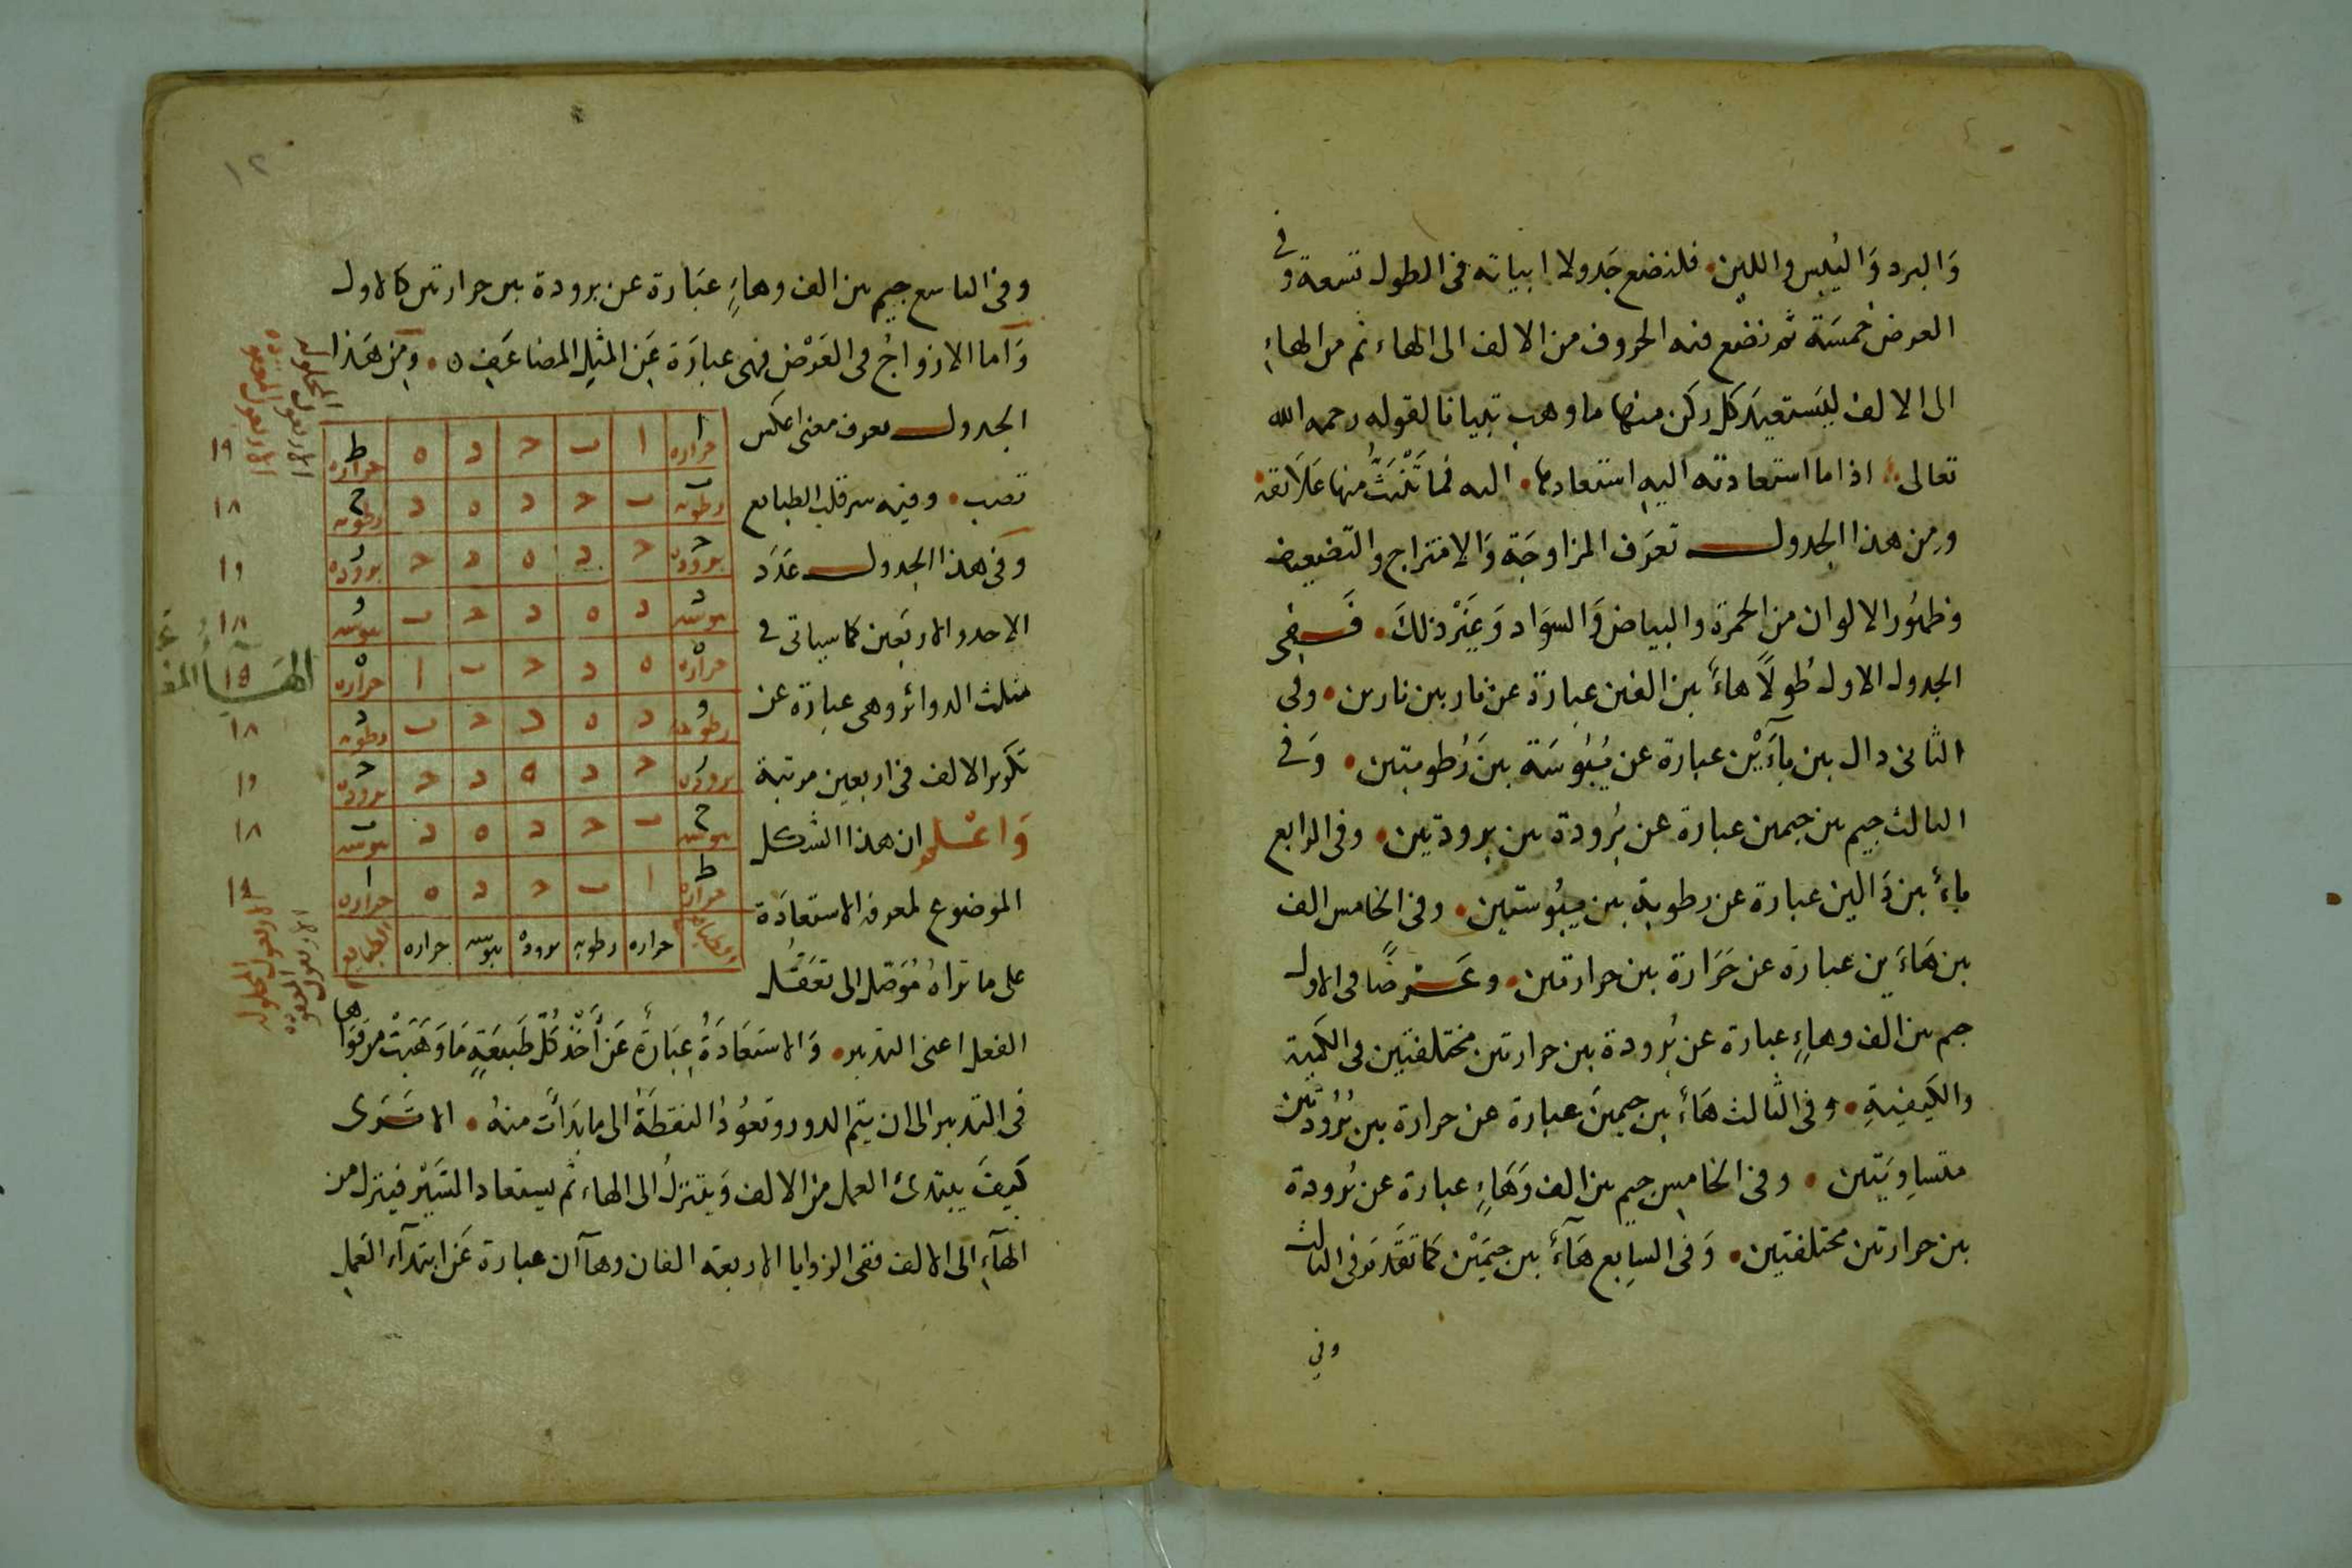 وَالبرد وَاليُبس واللين فلنضع جَدولا ابياته فى الطول تسعة وفى
العرض خمسَة ثم نضع فيه الحروف من الالف الى الهاء ثم من الهاءِ
الى الالف ليَستعيدَ كل ركن منها ما وهب تبيانا لقوله رحمه الله
تعالى اذا ما استعادته اليه استعادها اليه فما تَلْبَثُ منها عَلَائقه
ومِن هذا الجدول تعرَف المزاوجَة وَالامتزاج والتضعيف
وظهُور الالوان من الحمرة والبياض وَالسوَاد وَغيَرْ ذلكَ فَفِى
الجدول الاول طُولاً هاءً بين الفين عبارة عن نار بين نارين وفى
الثانى دال بين بآءَيْن عبارة عن يُبُوسَة بينَ رُطوبتين وَفى
الثالث جيم بين جيمين عبارة عن بُرُودة بين برودتين وفى الرابع
باءً بين دَالين عبارة عن رطوبة بين يبُوستين وفى الخامس الف
بين هَاءَين عبارة عن حَرَارة بين حرارتين وعَرضًا فى الاول
جيم بين الف وهاءٍ عبارة عن بُرودة بين حرارتين مختلفتين فى الكمية
والكيفيةِ وفى الثالث هَاءً بين جيمين عبارة عن حرارة بين بُرُودتين
متساوِيَتين وفى الخامِس جيم بين الف وَهَاءٍ عبارة عن بُرودة
بين حرارتين مختلفتين وَفى السابِع هَآءً بين جيمَيْن كما تقَدمَ فى الثالث
وفى
١٢
وفى التاسع جيم بين الف وهاءٍ عبَارة عن برودة بين حرارتين كالاول
وَاما الازواجُ فى العَرْض فهى عبارَة عَن المثِل المضاعَف ٥ ومِن هَذا
الجدول تعرف معنى اعكس
تصب وفيه سر قلب الطبايع
وَفى هذا الجدول عَدَد
الاحد والاربَعين كما سياتى فى
مثلث الدوائر وهى عبارة عن
تكرير الالف فى اربعين مرتبة
وَاعْلم ان هذا الشكل
الموضوع لمعرفة الاستعادَة
على ما تراهُ مُوَصّل الى تعَقّل
ا حراره ا ب ج د ه ط حراره ١٩
ب رطوبه ب ج د ه د ح رطوبه ١٨
ج بروده ج د ه د ج ز بروده ١٩
د يبوسه د ه د ج ب و يبوسه ١٨
ه حراره ه د ج ب ا ه حراره ١٥
و رطوبه د ه د ج ب د رطوبه ١٨
ز بروده ج د ه د ج ج بروده ١٩
ح يبوسه ب ج د ه د ب يبوسه ١٨
ط حراره ا ب ج د ه ا حراره ١٩
الطبايع حراره رطوبه بروده يبوسه حراره الطبايع
الفعل اعنى التدبير وَالاستعَادَةُ عِبَارةٌ عَن أَخْذِ كُلّ طَبيعَةٍ مَا وَهَبَتْ من قوَاها
فى التدبير الى ان يتم الدور وتعوُدُ النقطَةُ الى ما بدَأَت منهُ الا تَرى
كَيفَ يبتدئ العمل من الالف وَيتنزلُ الى الهاء ثم يستعاد السَّيْر فينزل من
الهآءِ الى الالف ففى الزوايا الاربعة الفان وهاآن عبارة عَن ابتدآء العَملِ